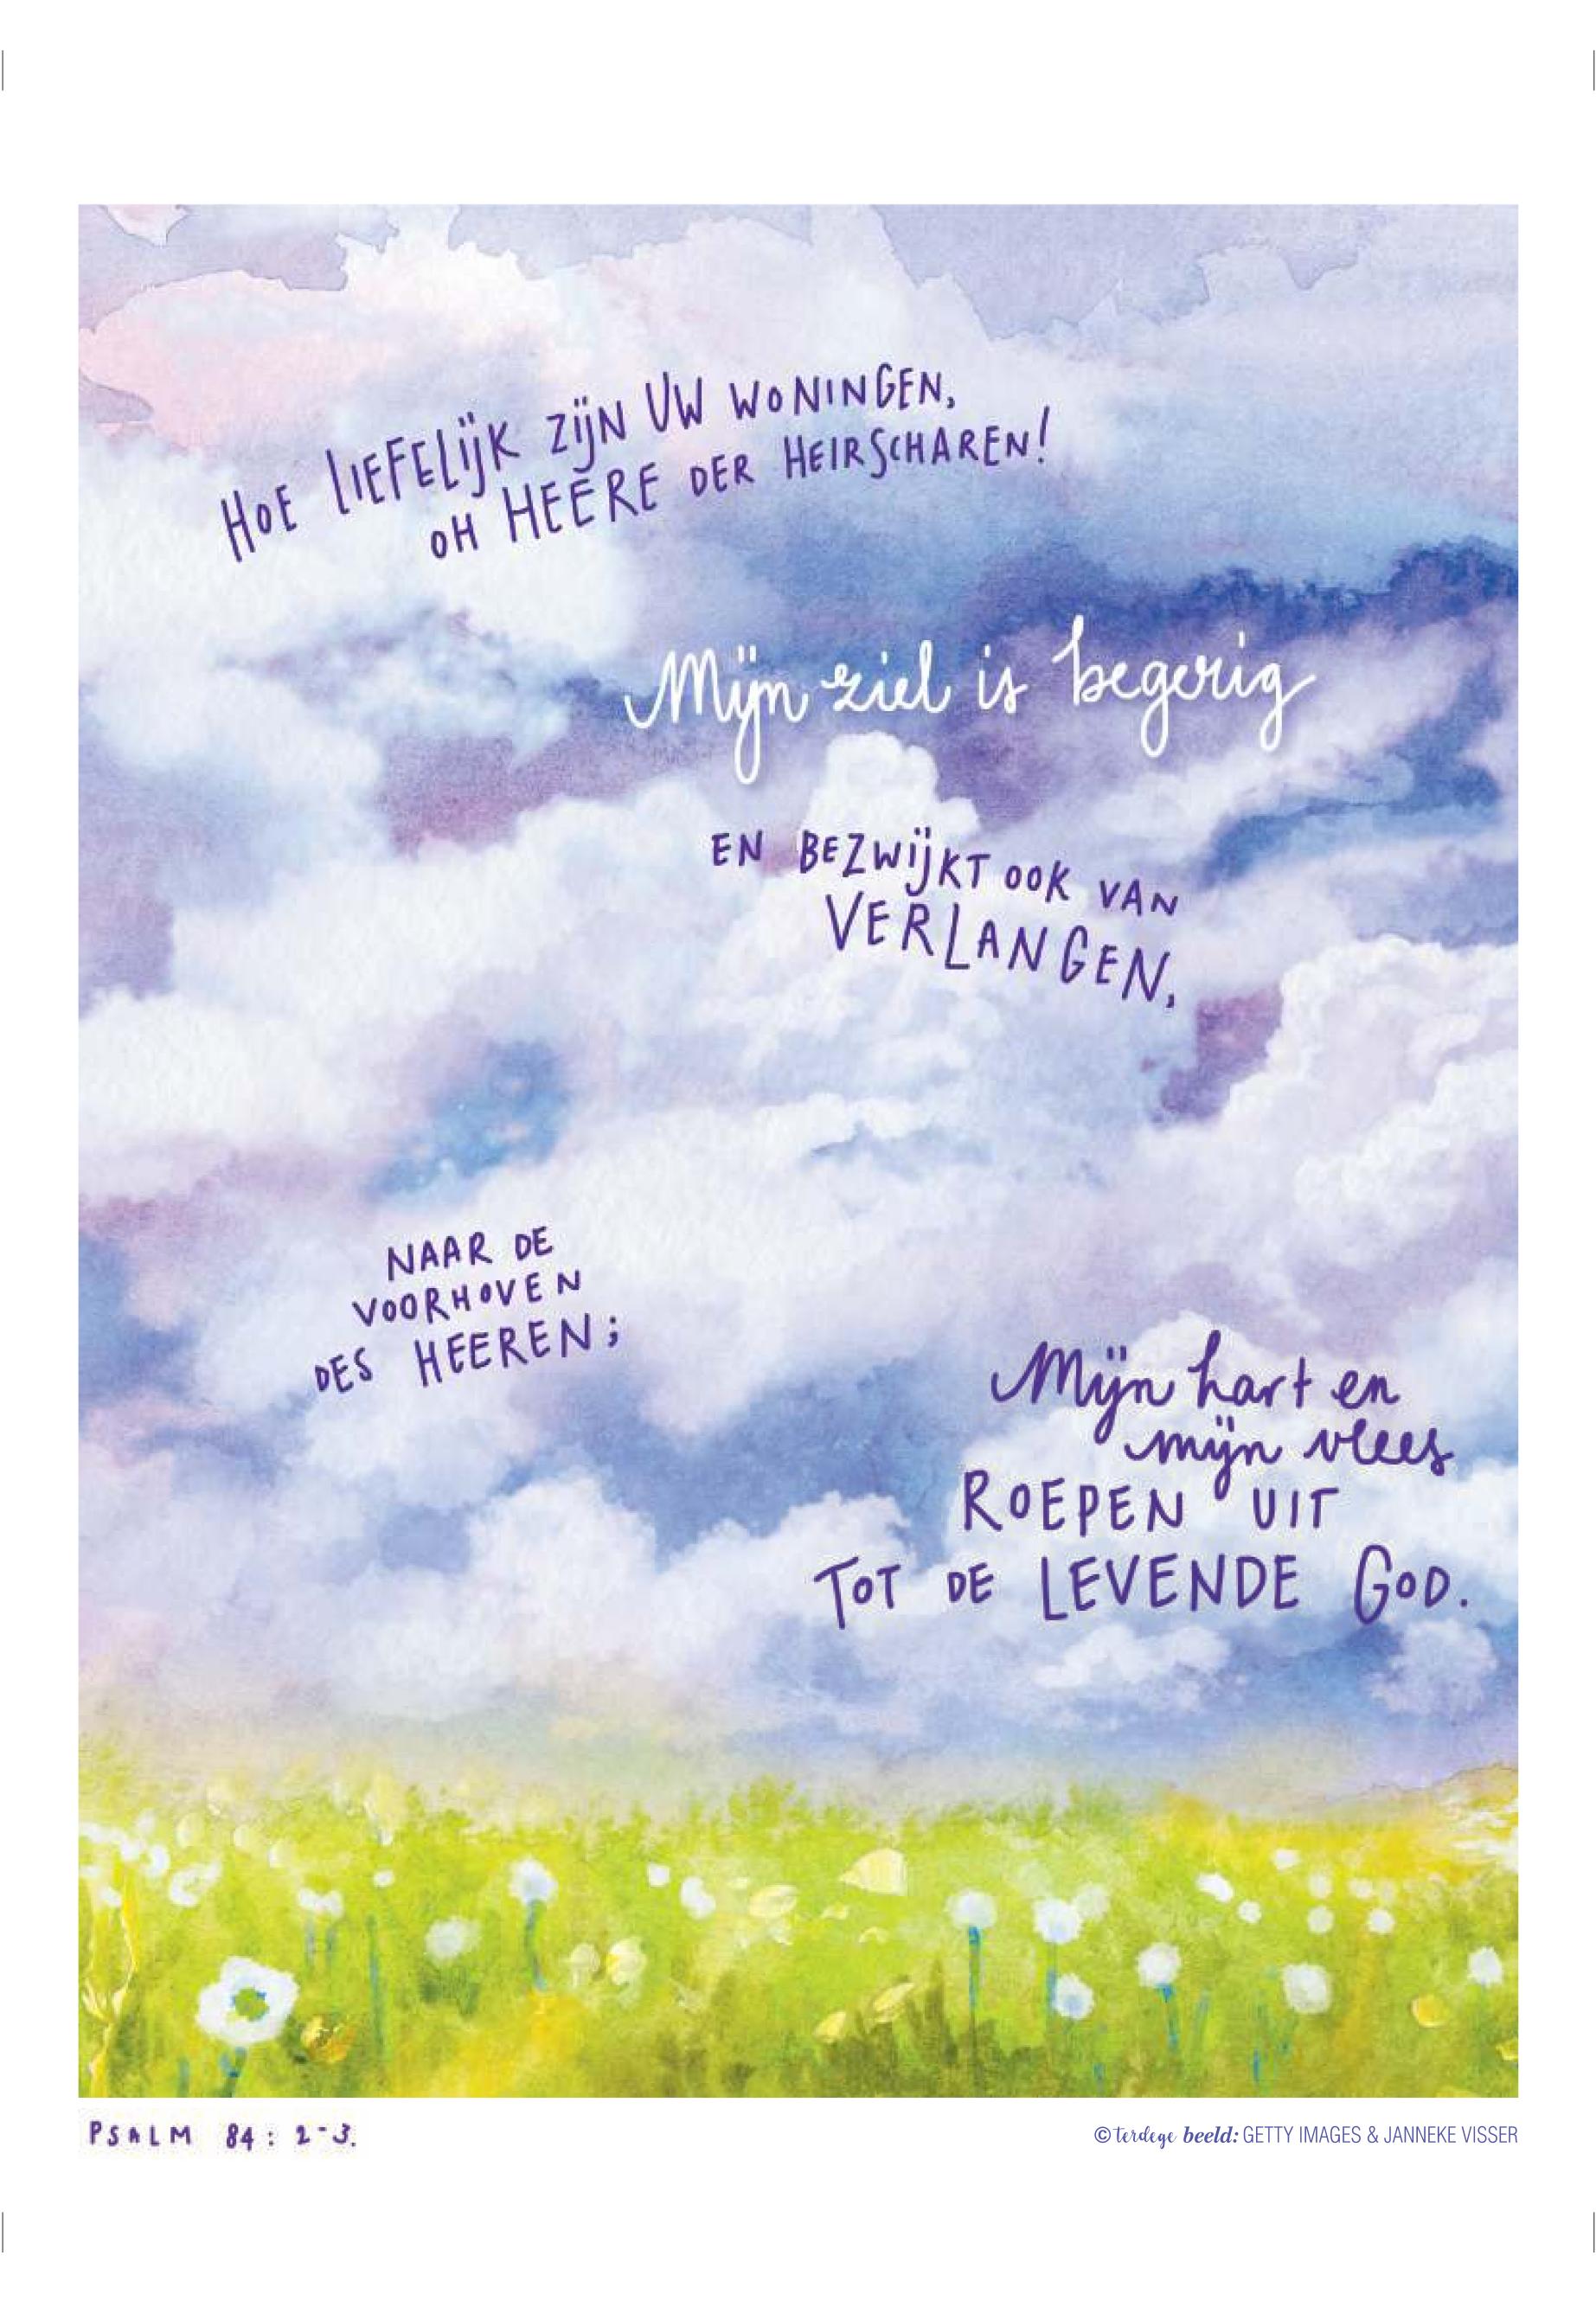 HOE LIEFELIJK ZIJN UW WONINGEN,
OH HEERE DER HEIRSCHAREN!
Mijn ziel is begerig
EN BEZWIJKT OOK VAN
VERLANGEN,
NAAR DE
VOORHOVEN
DES HEEREN;
Mijn hart en
mijn vlees
ROEPEN UIT
TOT DE LEVENDE GOD.
PSALM 84: 2-3.
© terdege beeld: GETTY IMAGES & JANNEKE VISSER